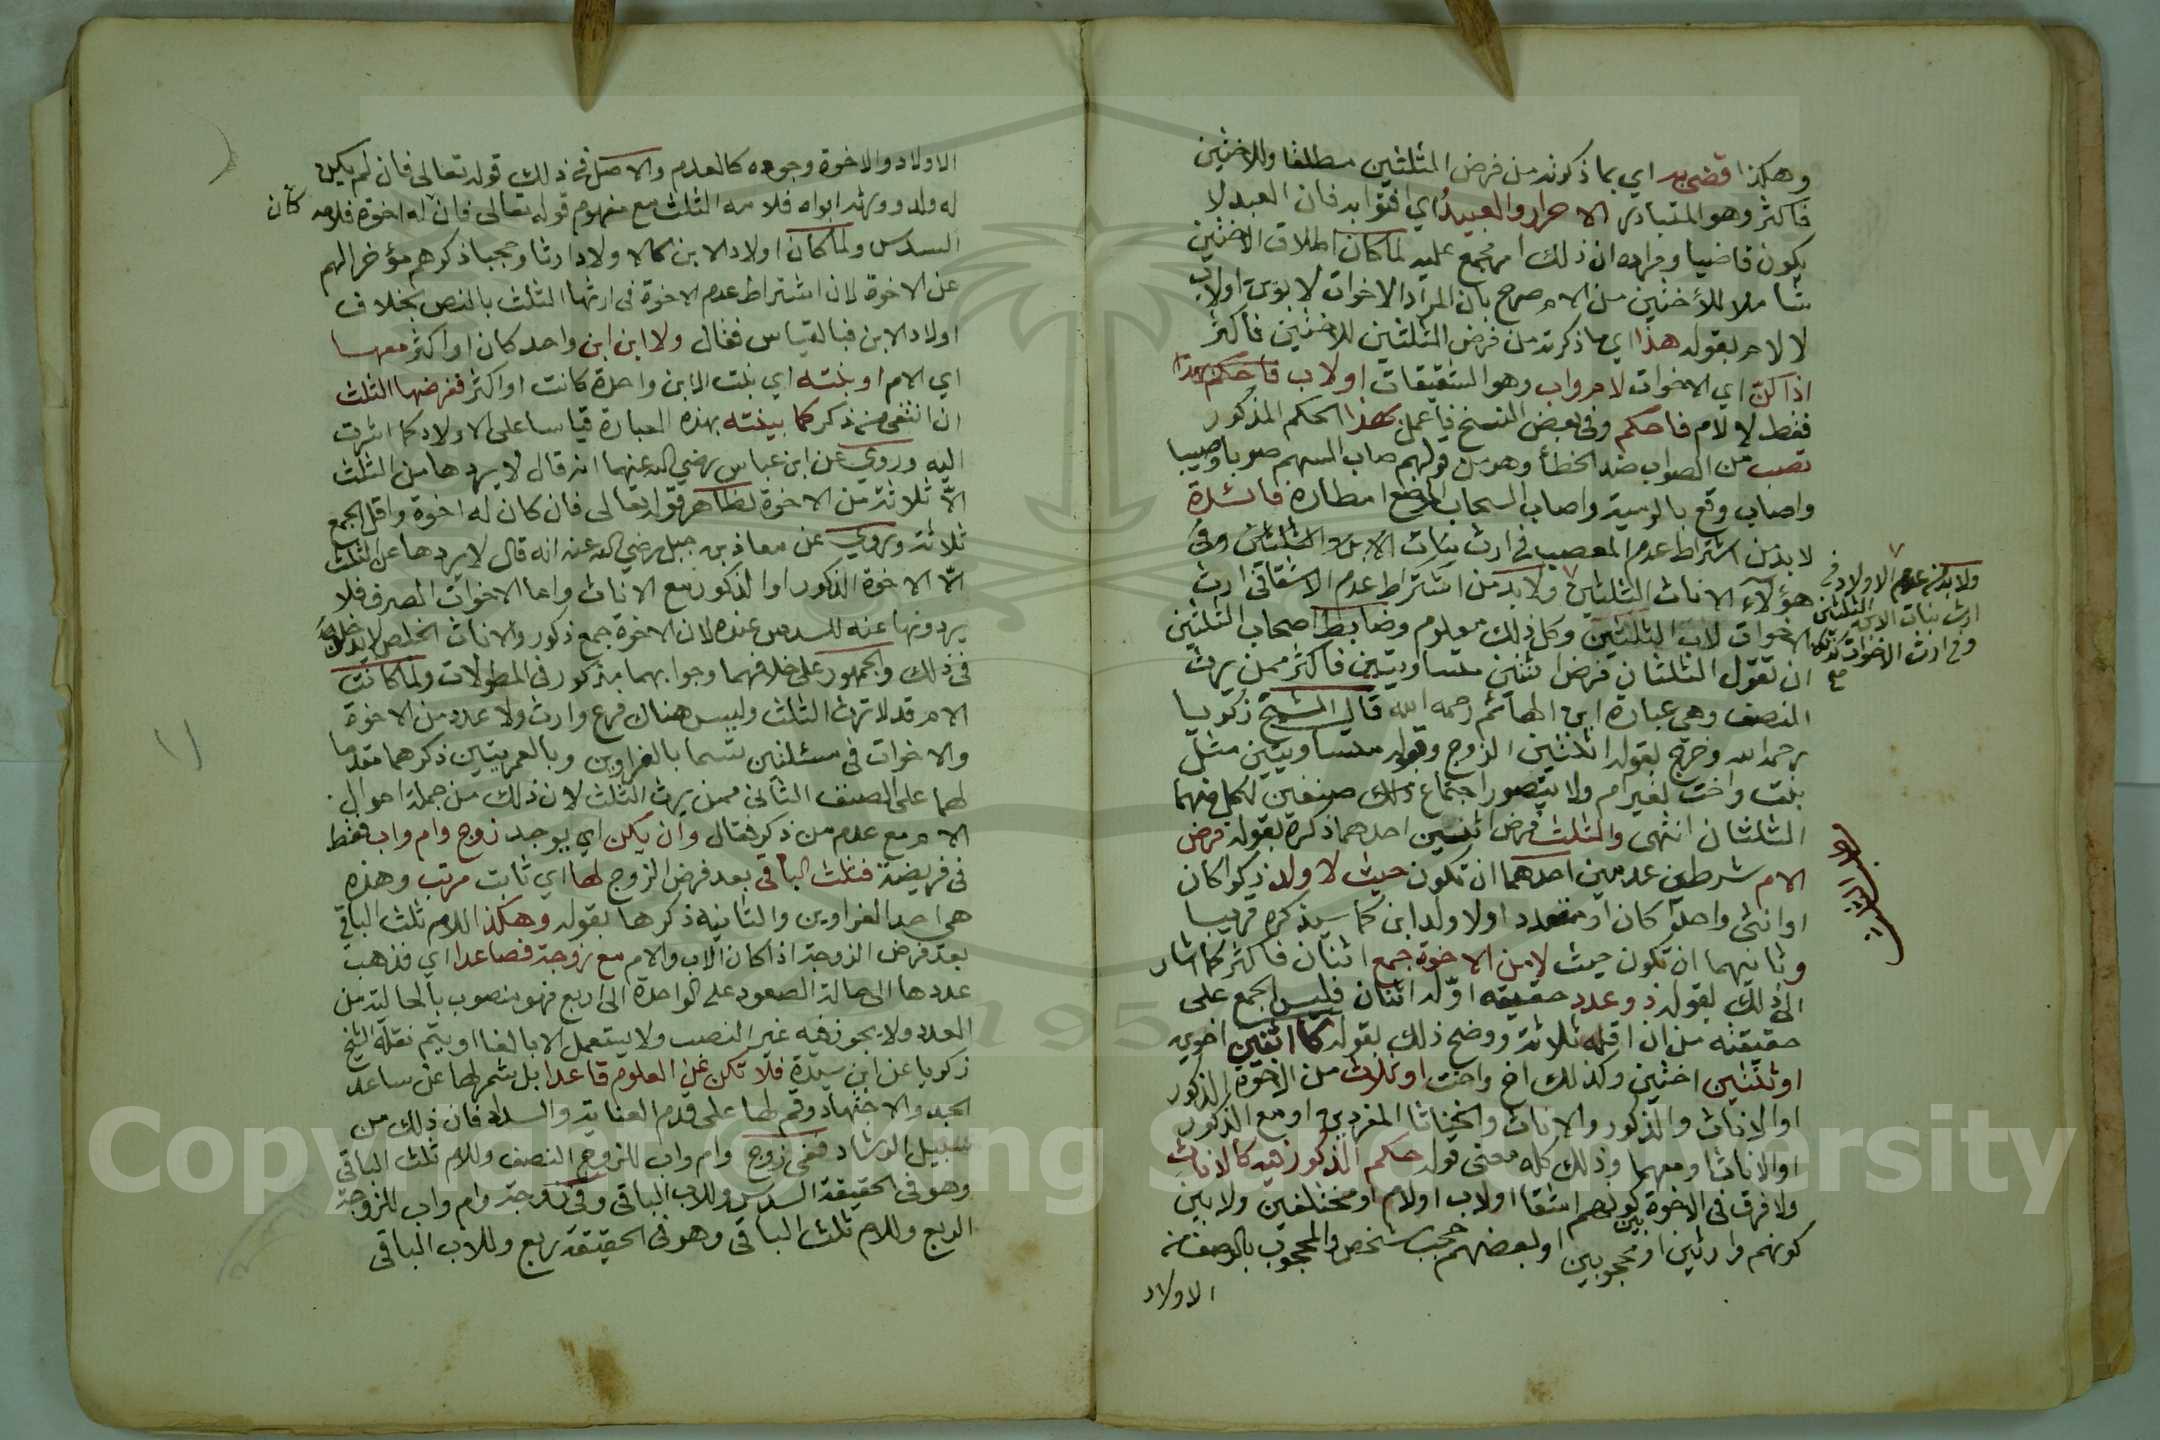 وهكذا قضى به اي بما ذكرته من فرض الثلثين مطلقا وللاختين
فاكثر وهو المتبادر الاحرار والعبيد اي افتوا به فان العبد لا
يكون قاضيا ومراده ان ذلك امر مجمع عليه لما كان اطلاق الاختين
شاملا للأختين من الام صرح بان المراد الاخوات لابوين او لاب
لا لام بقوله هذا اي ما ذكرته من فرض الثلثين للاختين فأكثر
اذا كن اي الاخوات لام واب وهو الشقيقات او لاب فاحكم بهذا
فقط لا لام فاحكم وفي بعض النسخ فاعمل بهذا الحكم المذكور
تصب من الصواب ضد الخطأ وهو من قولهم صاب السهم صوبا وصيبا
واصاب وقع بالرمية واصاب السحاب الموضع امطاره فائدة
لا بد من اشتراط عدم المعصب في ارث بنات الابن الثلثين وفي
هؤلآء الاناث الثلثين ولا بد من اشتراط عدم الاشقا في ارث
الاخوات لاب الثلثين وكل ذلك معلوم وضابط اصحاب الثلثين
ان تقول الثلثان فرض اثنتين متساويتين فاكثر ممن يرث
النصف وهي عبارة ابن الهائم رحمه الله قال الشيخ زكريا
رحمه الله وخرج بقوله اثنتين الزوج وبقوله متساويتين مثل
بنت واخت لغير ام ولا يتصور اجتماع ذلك صنفين لكل منهما
الثلثان انتهى والثلث فرض اثنين احدهما ذكره بقوله فرض
الام شرطين عدميين احدهما ان تكون حيث لا ولد ذكرا كان
او انثى واحدا كان او متعدد اولا ولد ابن كما سيذكره قريبا
وثانيهما ان تكون حيث لا من الاخوة جمع اثنان فاكثر كما اشار
الى ذلك بقوله ذو عدد حقيقه اوله اثنان فليس الجمع على
حقيقته من ان اقله ثلاثة ووضح ذلك بقوله كاثنين اخوين
او ثنتين اختين وكذلك اخ واخت او ثلاث من الاخوة الذكور
او الاناث والذكور والاناث والخناثا المفردين او مع الذكور
او الاناثا ومعهما وذلك كله معنى قوله حكم الذكور فيه كالاناث
ولا فرق في الاخوة بين كونهم اشقا او لاب او لام او مختلفين ولا بين
كونهم وارثين او محجوبين او بعضهم حجب شخص والمحجوب بالوصف من
الاولاد
ولا بد من عدم الاولاد في
ارث بنات الابن الثلثين
وفي ارث الاخوات كذلك
صح
الاولاد والاخوة وجوده كالعدم والاصل في ذلك قوله تعالى فان لم يكن
له ولد وورثه ابواه فلامه الثلث مع مفهوم قوله تعالى فان له اخوة فلامه
كان
السدس ولما كان اولاد الابن كالاولاد ارثا وحجبا ذكرهم مؤخرا لهم
عن الاخوة لان اشتراط عدم الاخوة في ارثها الثلث بالنص بخلاف
اولاد الابن فبالقياس فقال ولا ابن ابن واحد كان او اكثر معها
اي الام او بنته اي بنت الابن واحدة كانت او اكثر ففرضها الثلث
ان انتفى من ذكر كما بينته بهذه العبارة قياسا على الاولاد كما اشرت
اليه وروي عن ابن عباس رضي الله عنهما انه قال لا يردها من الثلث
الا ثلاثة من الاخوة لظاهر قوله تعالى فان كان له اخوة واقل الجمع
ثلاثة وروي عن معاذ بن جبل رضي الله عنه انه قال لا يردها عن الثلث
الا الاخوة الذكور او الذكور مع الاناث واما الاخوات الصرف فلا
يردونها عنه للسدس عنده لان الاخوة جمع ذكور والاناث الخلص لا يدخلن
في ذلك والجمهور على خلافهما وجوابهما مذكور في المطولات ولما كانت
الام قد لا ترث الثلث وليس هناك فرع وارث ولا عدد من الاخوة
والاخوات في مسئلتين تسما بالغراوين وبالعمريتين ذكرهما مقدما
لهما على الصنف الثاني ممن يرث الثلث لان ذلك من جملة احوال
الام مع عدم من ذكر فقال وان يكن اي يوجد زوج وام واب فقط
في فريضة فثلث الباقي بعد فرض الزوج لها اي ثابت مرتب وهذه
هي احد الغراوين والثانية ذكرها بقوله وهكذا للام ثلث الباقي
بعد فرض الزوجة اذا كان الاب والام مع زوجة فصاعدا اي فذهب
عددها الى حالة الصعود على الواحدة الى اربع فهو منصوب بالحالية من
العدد ولا يجوز فيه غير النصب ولا يستعمل الا بالفا او بثم نقله الشيخ
زكريا عن ابن سيدة فلا تكن عن العلوم قاعدا بل شمر لها عن ساعد
الجد والاجتهاد وقم لها على قدم العناية والسداد فان ذلك من
سبيل الرشاد ففي زوج وام واب للزوج النصف وللام ثلث الباقي
وهو في الحقيقة السدس وللاب الباقي وفي زوجة وام واب للزوجة
الربع وللام ثلث الباقي وهو في الحقيقة ربع وللاب الباقي
Copyright © King Saud University